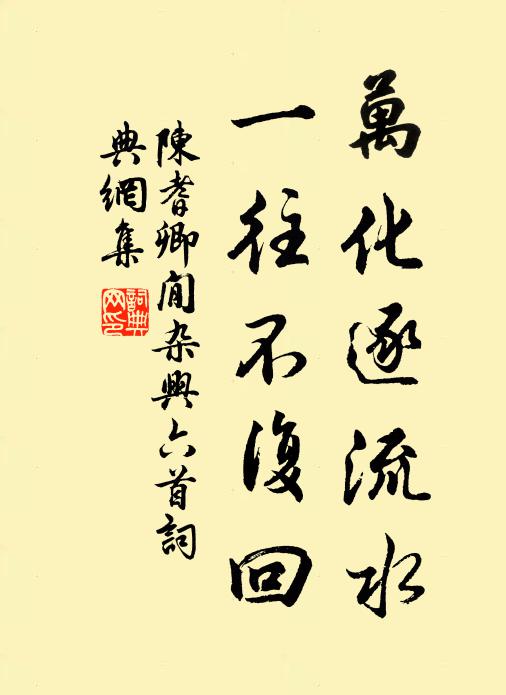 萬化逐流水
一往不復回
陳耆卿閒杂興六首詞
典網集
詞典
网印